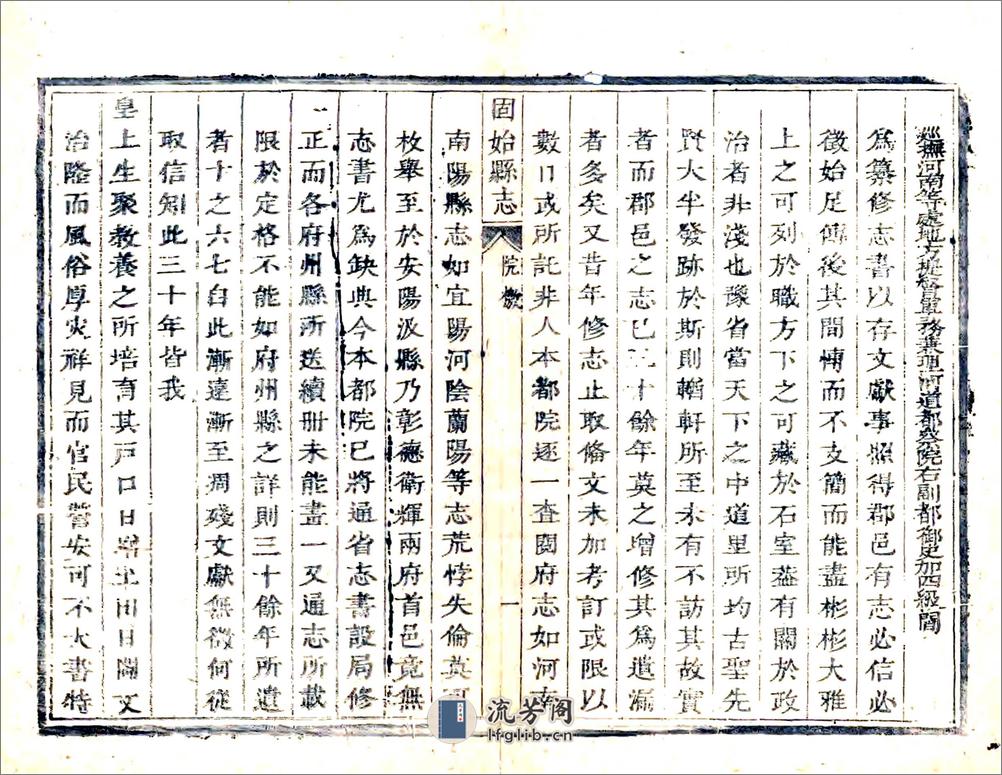 巡撫河南等處地方提督軍務兼理河道都察院右副都御史加四級閻
為纂修志書以存文獻事照得郡邑有志必信必
徵始足傳後其間博而不支簡而能盡彬彬大雅
上之可列於職方下之可藏於石室葢有關於政
治者非淺也豫省當天下之中道里所均古聖先
賢大半發跡於斯則輶軒所至未有不訪其故實
者而郡邑之志已三十餘年莫之增修其為遺漏
者多矣又昔年修志止取備文未加考訂或限以
數日或所託非人本都院逐一查閱府志如河南
固始縣志 院檄 一
南陽縣志如宜陽河陰蘭陽等志荒悖失倫莫可
枚舉至於安陽汲縣乃彰德衛輝兩府首邑竟無
志書尤為缺典今本都院已將通省志書設局修
正而各府州縣所送續册未能畫一又通志所載
限於定格不能如府州縣之詳則三十餘年所遺
者十之六七自此漸遠漸至凋殘文獻無徵何從
取信知此三十年皆我
皇上生聚教養之所培育其戸口日增土田日闢文
治隆而風俗厚灾祥見而官民營安可不大書特
流芳阁
lfglib.cn